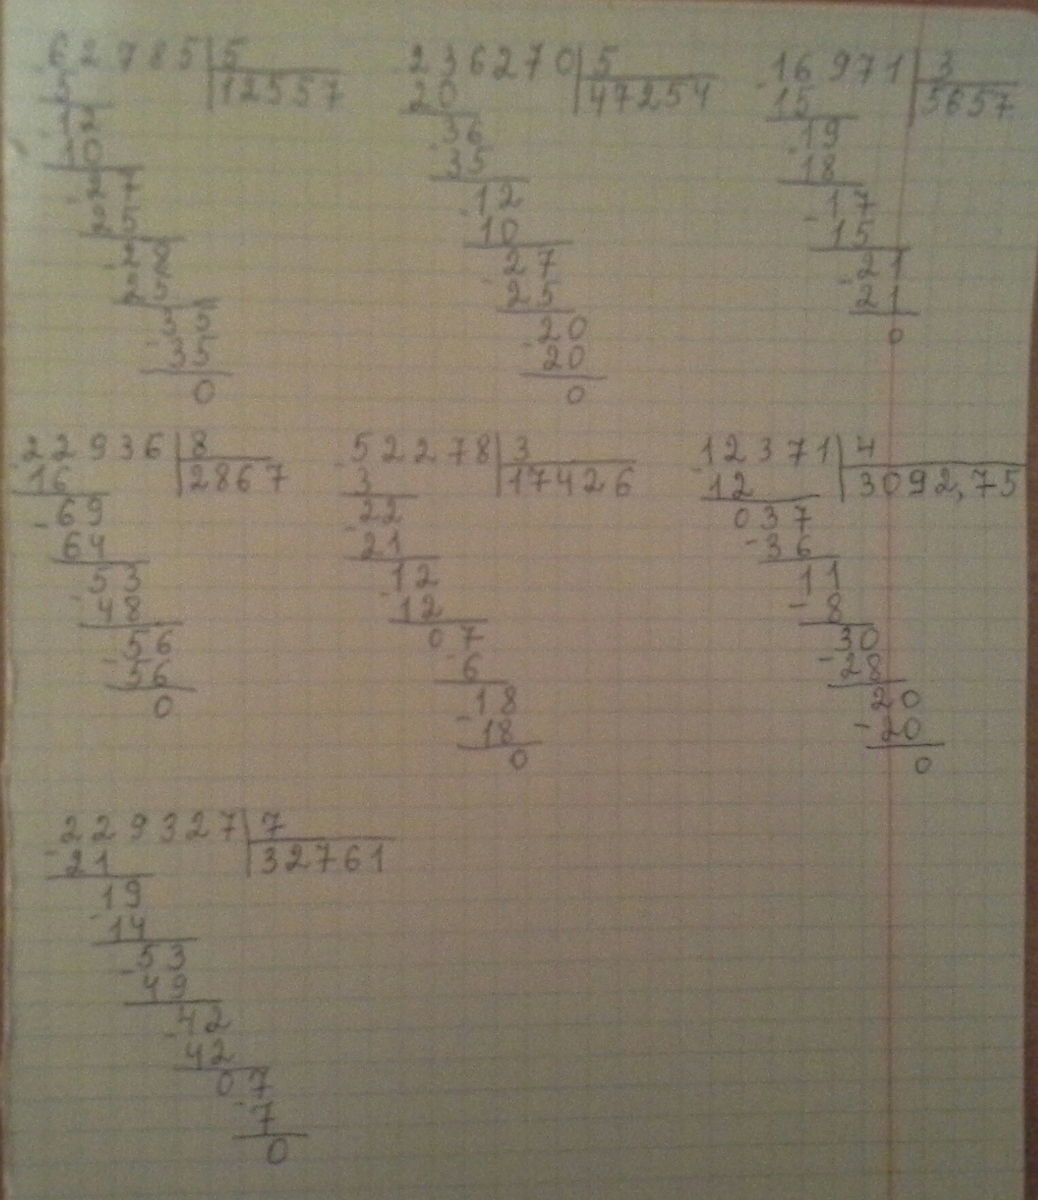 62785 5
5 12557
12
10
27
25
28
25
35
35
0
236270 5
20 47254
36
35
12
10
27
25
20
20
0
16971 3
15 5657
19
18
17
15
21
21
0
22936 8
16 2867
69
64
53
48
56
56
0
52278 3
3 17426
22
21
12
12
07
6
18
18
0
12371 4
12 3092,75
037
36
11
8
30
28
20
20
0
229327 7
21 32761
19
14
53
49
42
42
07
7
0